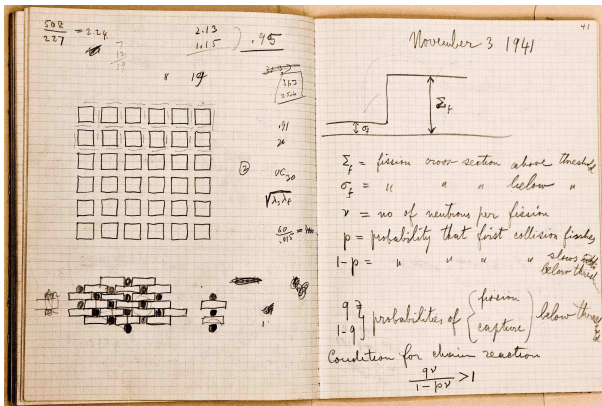 508
227 = 2.24
2.13
1.15
.95
7
12
19
8 19
.91
20
2
UC20
√λ, λf
60
.015
41
November 3 1941
Σf
σf
Σf = fission cross section above threshold
σf = " " " below "
ν = no of neutrons per fission
p = probability that first collision fissions
1-p = " " " " slows
below thresh
q
1-q } probabilities of { fission
capture } below thresh
Condition for chain reaction
qν
1-pν >1